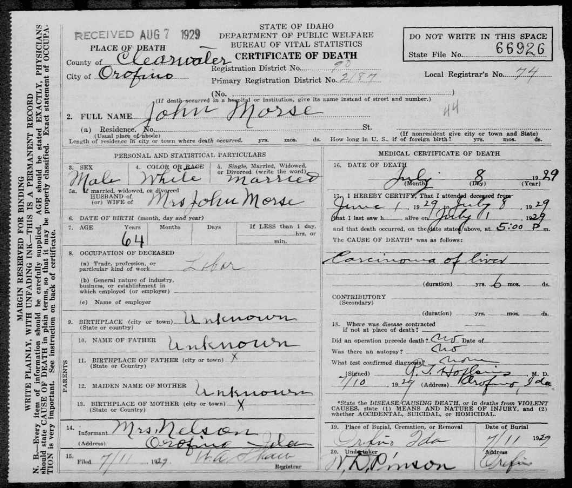 RECEIVED AUG 7 1929
STATE OF IDAHO
DEPARTMENT OF PUBLIC WELFARE
BUREAU OF VITAL STATISTICS
CERTIFICATE OF DEATH
DO NOT WRITE IN THIS SPACE
State File No. 66926
PLACE OF DEATH
County of Clearwater
City of Orofino
Registration District No.
Primary Registration District No. 2187
Local Registrar's No. 74
(No.
(If death occurred in a hospital or institution, give its name instead of street and number.)
2. FULL NAME John Morse
44
(a) Residence, No. St.
(Usual place of abode) (If nonresident give city or town and State)
Length of residence in city or town where death occurred. yrs. mos. ds. How long in U. S., if of foreign birth? yrs. mos. ds.
PERSONAL AND STATISTICAL PARTICULARS
3. SEX 4. COLOR OR RACE 5. Single, Married, Widowed, or Divorced (write the word)
Male White Married
5a. If married, widowed, or divorced
HUSBAND of
(or) WIFE of Mrs John Morse
6. DATE OF BIRTH (month, day and year)
7. AGE Years Months Days If LESS than 1 day, hrs. or min.
64
8. OCCUPATION OF DECEASED
(a) Trade, profession, or particular kind of work Labor
(b) General nature of industry, business, or establishment in which employed (or employer)
(c) Name of employer
9. BIRTHPLACE (city or town) Unknown
(State or country)
10. NAME OF FATHER Unknown
11. BIRTHPLACE OF FATHER (city or town) X
(State or country)
12. MAIDEN NAME OF MOTHER Unknown
13. BIRTHPLACE OF MOTHER (city or town) X
(State or country)
PARENTS
14. Informant Mrs Nelson
(Address) Orofino Ida
15. Filed 7/11 1929
Registrar
MEDICAL CERTIFICATE OF DEATH
16. DATE OF DEATH July 8 1929
(Month) (Day) (Year)
17. I HEREBY CERTIFY, That I attended deceased from
June 1 1929 July 8 1929
that I last saw h alive on July 1 1929
and that death occurred, on the date stated above, at 5:00 P m.
The CAUSE OF DEATH* was as follows:
Carcinoma of liver
(duration) yrs. 6 mos. ds.
CONTRIBUTORY
(Secondary)
(duration) yrs. mos. ds.
18. Where was disease contracted
if not at place of death?
Did an operation precede death? no
Was there an autopsy? no
What test confirmed diagnosis? none
(Signed) M. D.
7/10 1929 (Address) Orofino Ida
*State the DISEASE CAUSING DEATH, or in deaths from VIOLENT CAUSES, state (1) MEANS AND NATURE OF INJURY, and (2) whether ACCIDENTAL, SUICIDAL, or HOMICIDAL.
19. Place of Burial, Cremation, or Removal Date of Burial
Orofino Ida 7/11 1929
20. Undertaker Address
W. D. Pinson Orofino
MARGIN RESERVED FOR BINDING
WRITE PLAINLY, WITH UNFADING INK—THIS IS A PERMANENT RECORD
N. B.—Every item of information should be carefully supplied. AGE should be stated EXACTLY. PHYSICIANS should state CAUSE OF DEATH in plain terms, so that it may be properly classified. Exact statement of OCCUPATION is very important. See instruction on back of certificate.